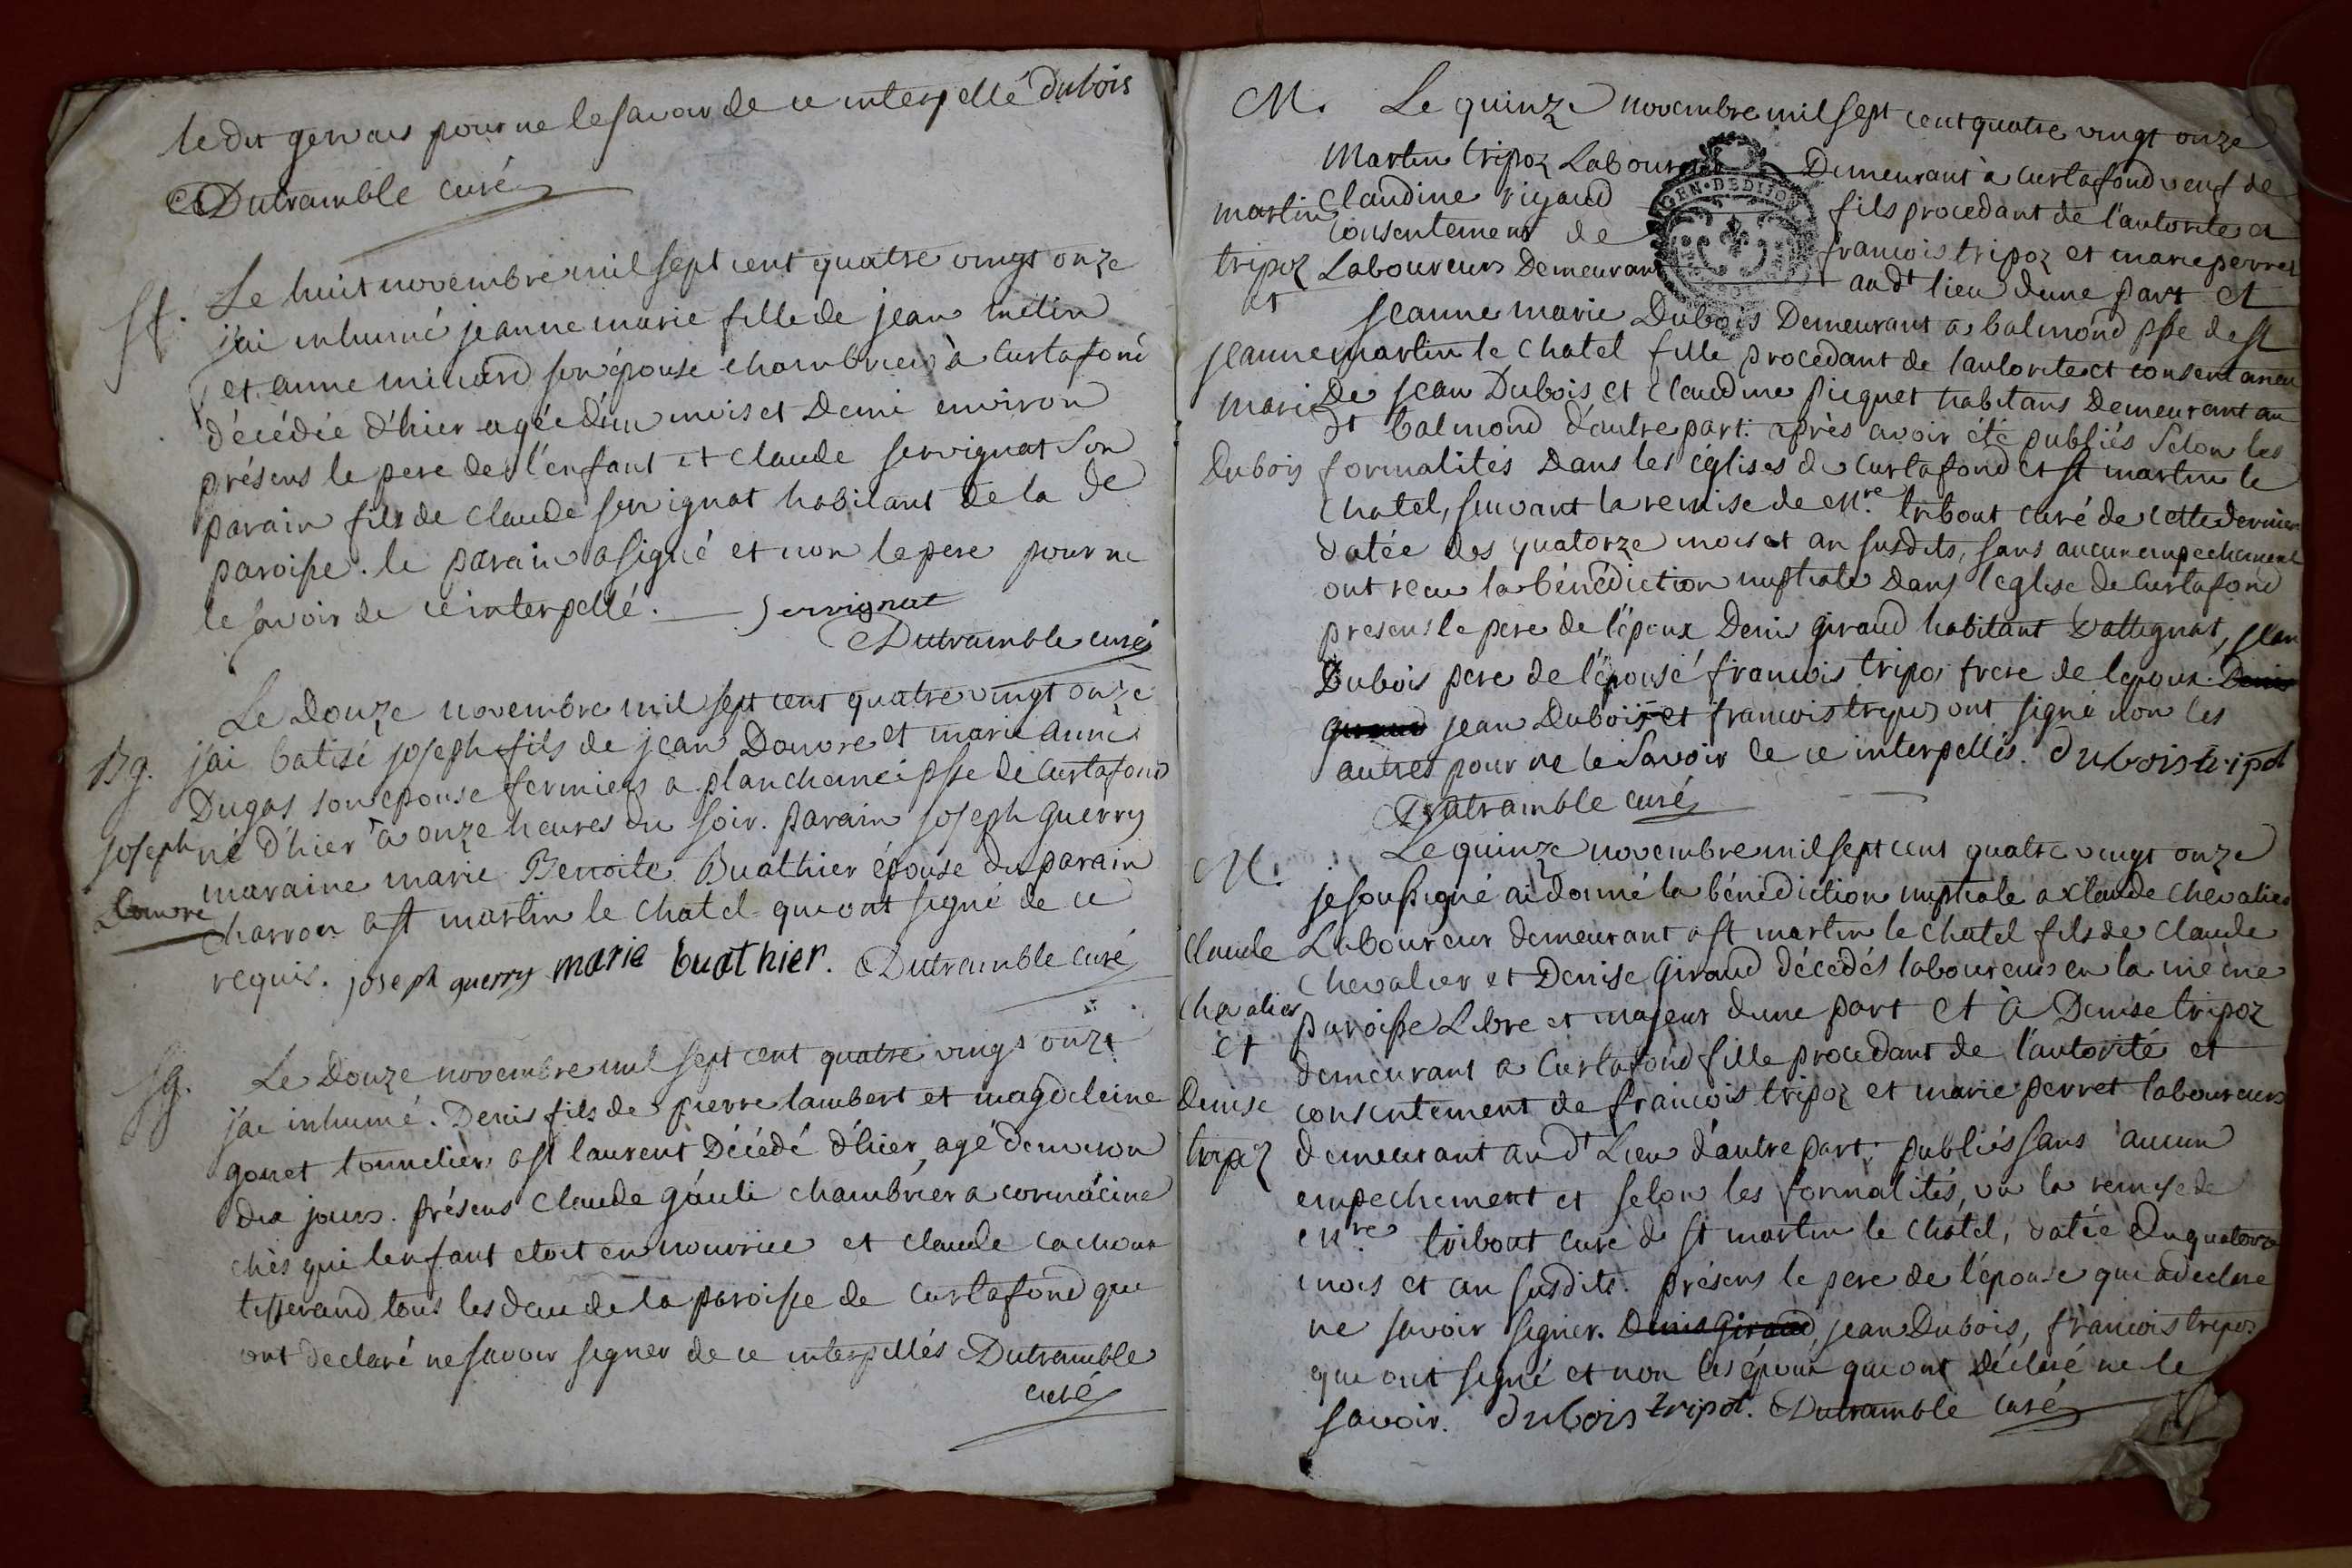 le dit gervais pour ne le savoir de ce interpellé Dubois
Dutramble curé
Le huit novembre mil sept cent quatre vingt onze
j'ai inhumé jeanne marie fille de jean métin
et anne minard son épouse chambrier à Curtafond
décédée d'hier agée d'un mois et Demi environ
présens le pere de l'enfant et claude servignat son
parain fils de claude servignat habitant de la de
paroisse. le parain a signé et non le pere pour ne
le savoir de ce interpellé. Servignat
Dutramble curé
Le Douze novembre mil sept cent quatre vingt onze
Bg. j'ai batisé joseph fils de jean Douvre et marie anne
Dugas son epouse fermiers a planchemeipsse de Curtafond
joseph né d'hier à onze heures du soir. parain joseph guerry
maraine marie Benoite Buathier épouse du parain
Douvre charron a st martin le chatel qui ont signé de ce
requis. joseph guerry marie buathier. Dutramble curé
Sg. Le Douze novembre mil sept cent quatre vingt onze
j'ai inhumé. Denis fils de pierre lambert et magdeleine
gonet tonnelier a st laurent Décédé d'hier, agé d'environ
dix jours. présens Claude gauli chambrier a cormacine
chès qui lenfant etoit en nourrice et claude cachour
tisserand tous les deux de la paroisse de Curtafond qui
ont declaré ne savoir signer de ce interpellés Dutramble
curé
M. Le quinze novembre mil sept cent quatre vingt onze
Martin tripoz Laboureur Demeurant à Curtafond veuf de
martin Claudine rigaud fils procedant de l'autorite et
consentement de francois tripoz et marie perret
tripoz Laboureurs Demeurant aud^t lieu dune part et
et jeanne marie Dubois Demeurant a balmond psse de st
jeanne martin le chatel fille procedant de l'autorite et consentement
marie De jean Dubois et claudine piquet habitans Demeurant au
dt balmond d'autre part. après avoir été publiés selon les
Dubois formalités Dans les eglises de Curtafond et st martin le
chatel, suivant la remise de m^re. tribout curé de cette dernière
datée des quatorze mois et an susdits, sans aucun empechement
ont recu la bénédiction nuptiale Dans leglise de Curtafond
presens le pere de l'époux Denis giraud habitant d'attignat, jean
Dubois pere de l'épouse francois tripoz frere de lepoux Denis
giraud jean Dubois et francois tripoz ont signé non les
autres pour ne le Savoir de ce interpellés. dubois tripot
Dutramble curé
M. Le quinze novembre mil sept cent quatre vingt onze
je soussigné ai donné la bénédiction nuptiale a claude chevalier
claude Laboureur demeurant a st martin le chatel fils de claude
chevalier et Denise giraud décédés laboureurs en la même
chevalier paroisse Libre et majeur dune part et à Denise tripoz
et demeurant a Curtafond fille procedant de l'autorité et
Denise consentement de francois tripoz et marie perret laboureurs
tripoz demeurant aud^t Lieu d'autre part. publiés sans aucun
empechement et selon les formalités, vu la remise de
m^re. tribout curé de st martin le chatel, datée du quatorze
mois et an susdits. présens le pere de l'épouse qui a declare
ne savoir signer. Denis Giraud, jean Dubois, francois tripoz
qui ont signé et non les époux qui ont déclaré ne le
savoir. dubois tripot. Dutramble curé